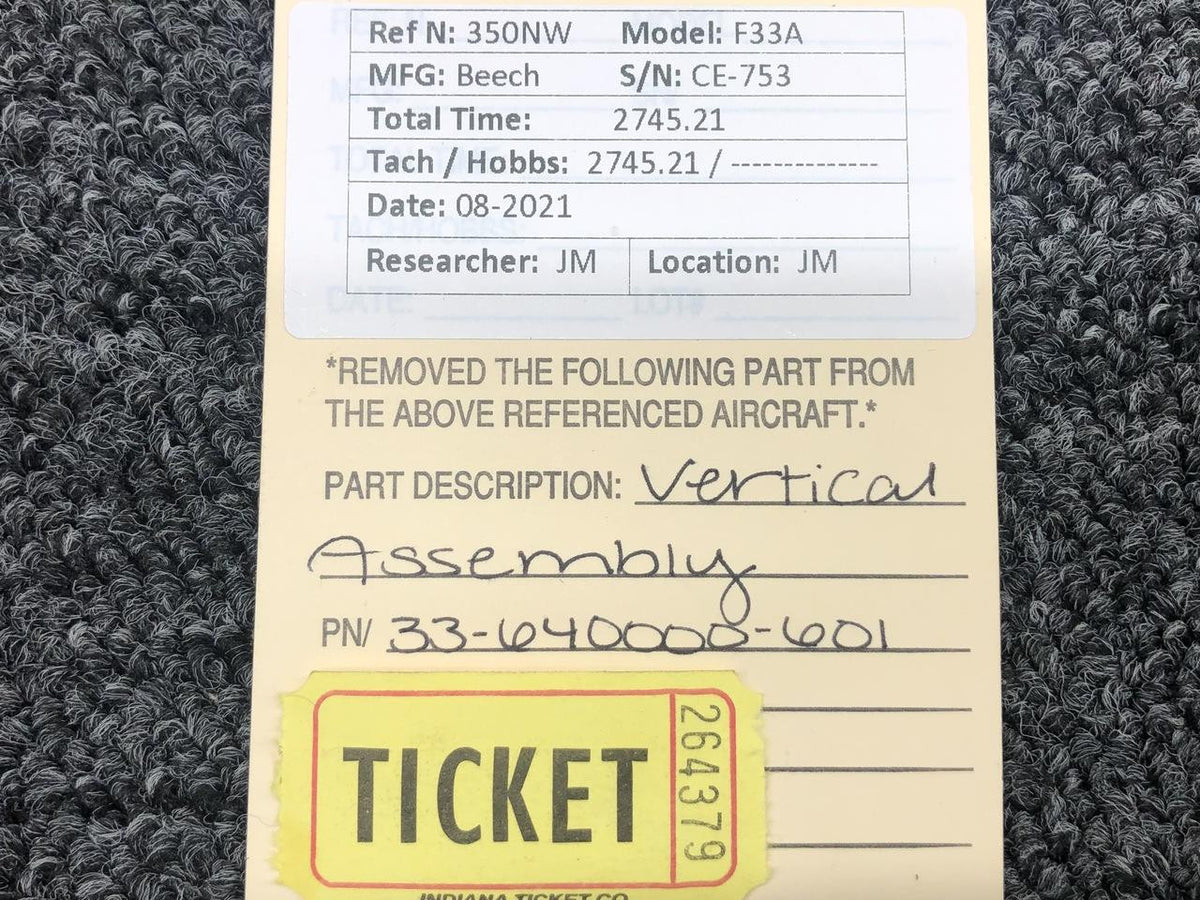 Ref N: 350NW Model: F33A
MFG: Beech S/N: CE-753
Total Time: 2745.21
Tach / Hobbs: 2745.21 / --------------
Date: 08-2021
Researcher: JM Location: JM
DATE: LOT#
*REMOVED THE FOLLOWING PART FROM
THE ABOVE REFERENCED AIRCRAFT.*
PART DESCRIPTION: Vertical
Assembly
PN/ 33-640000-601
TICKET 264379
INDIANA TICKET CO